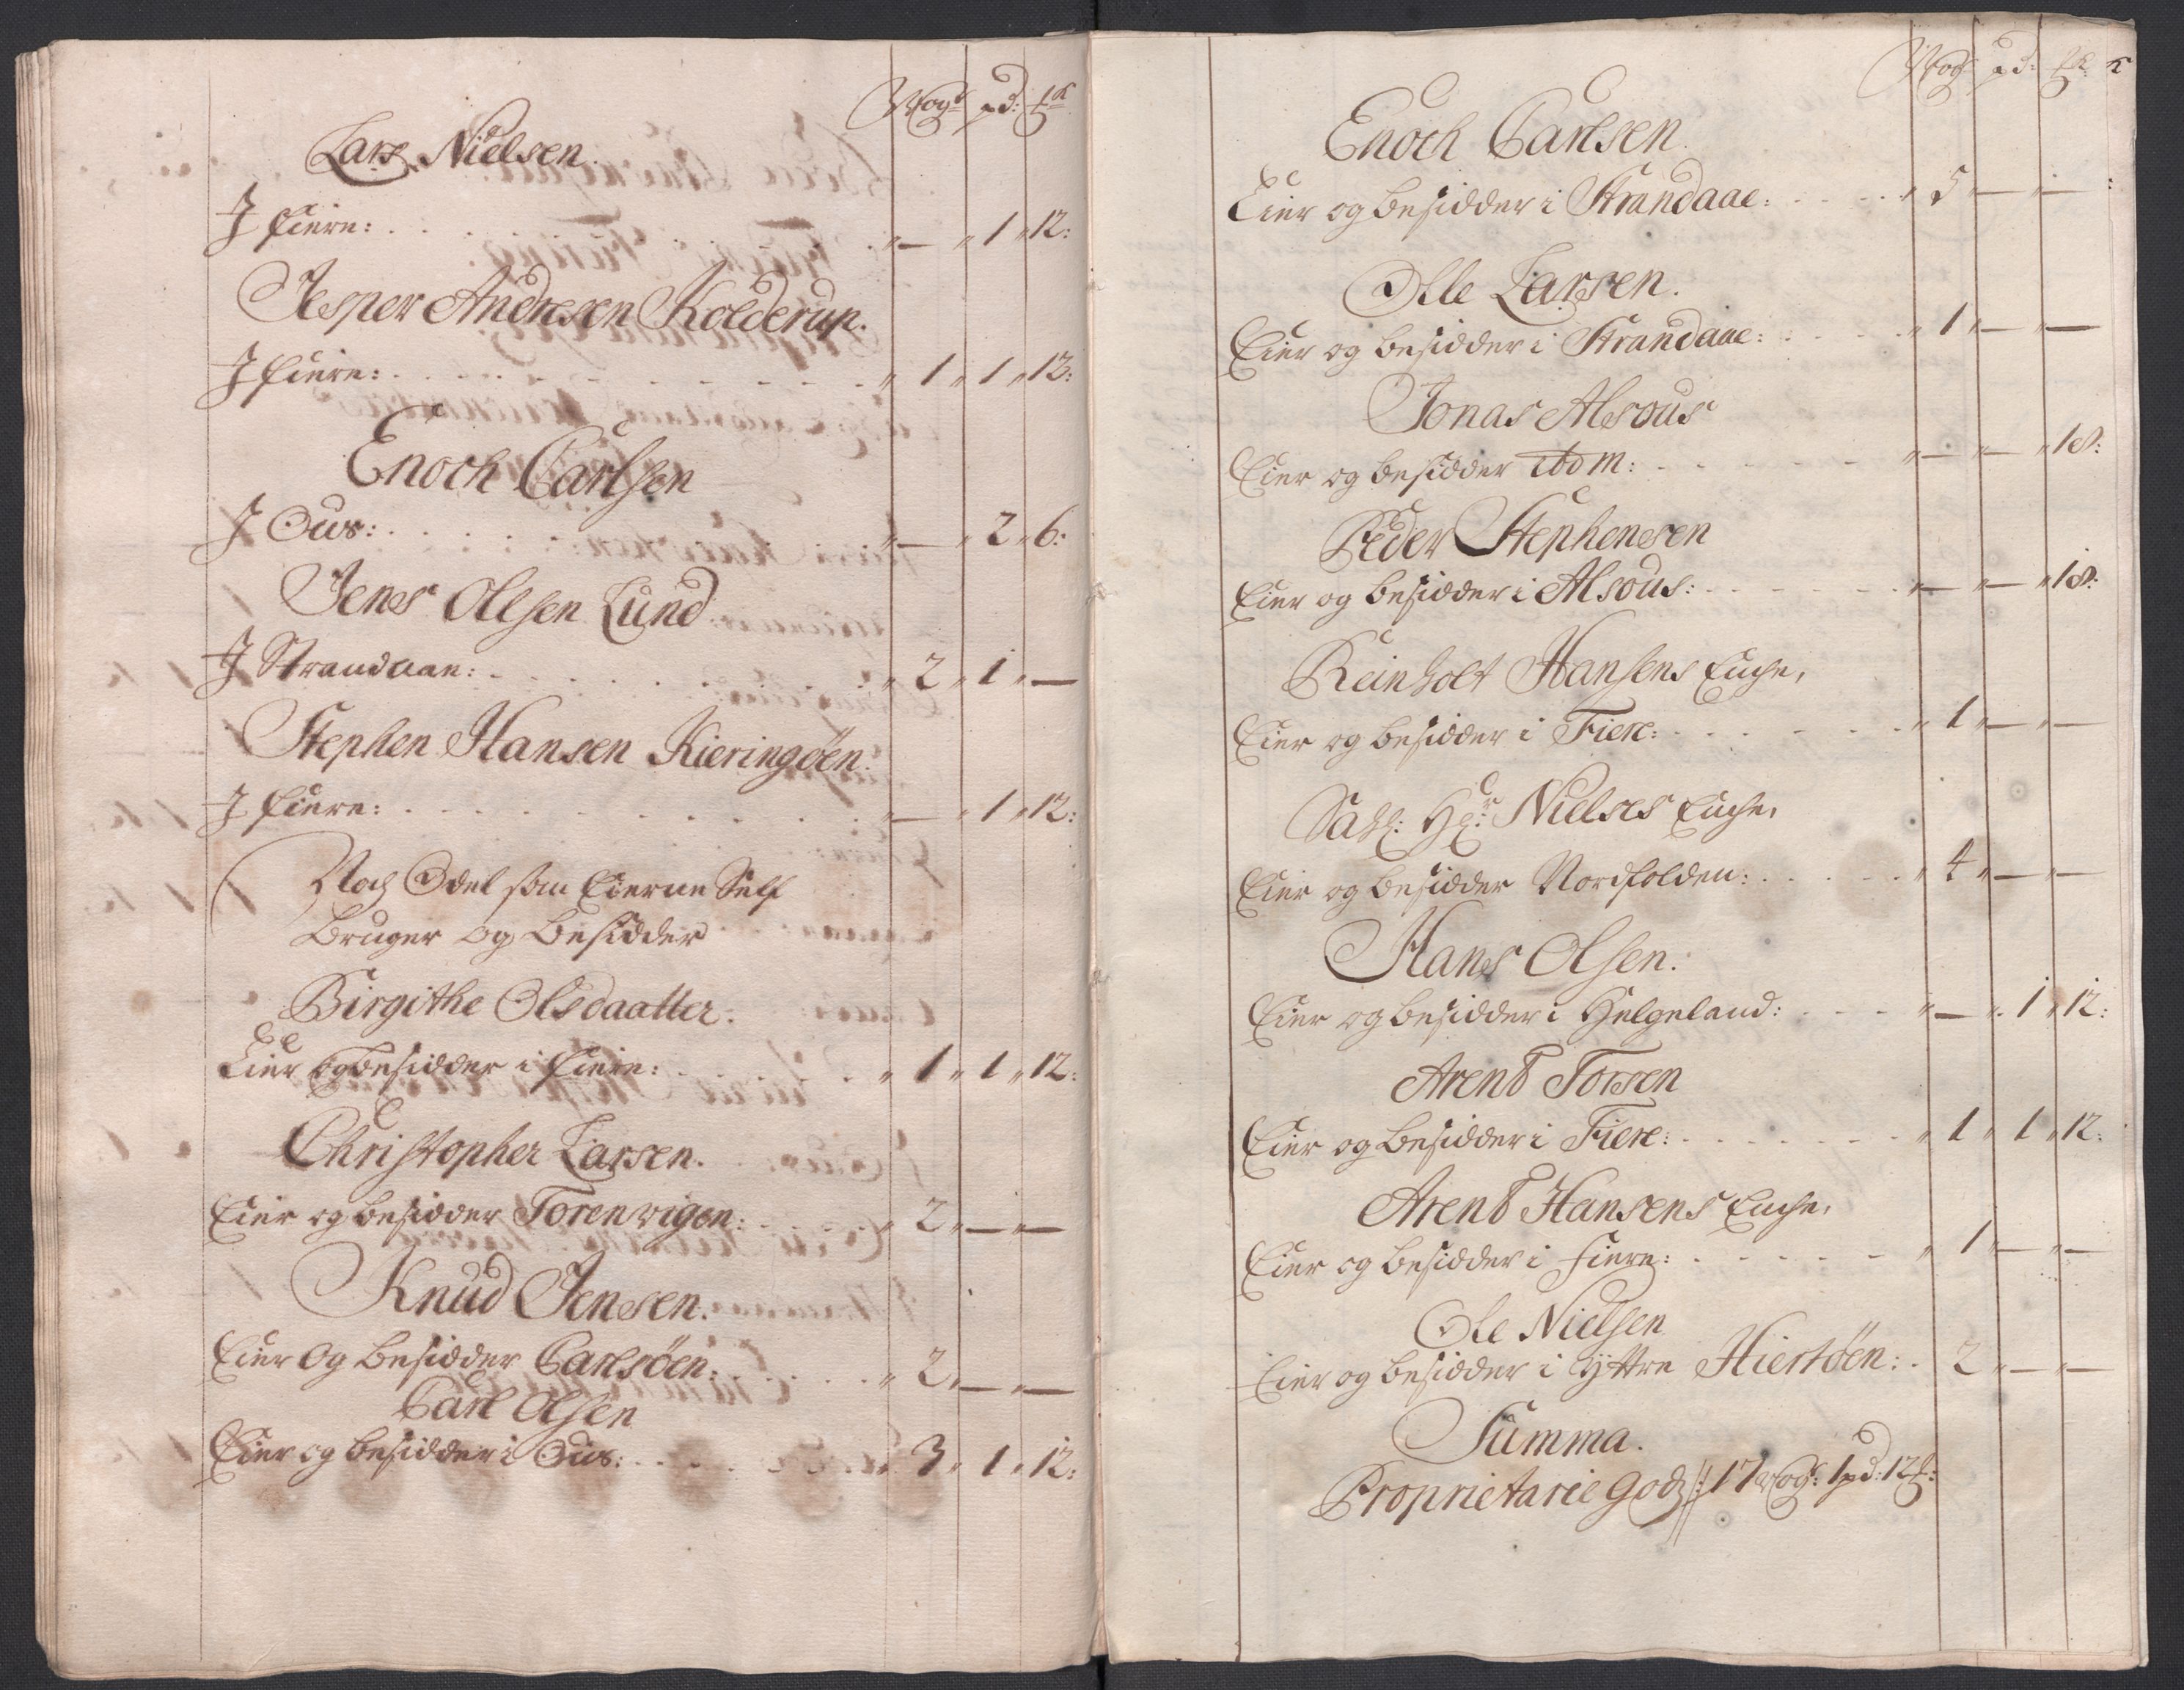 Wog: pd: ℔
Lars Nielsen.
J Fiere: — 1 12:
Jesper Andresen Kolderup.
J Fiere: 1 1 12:
Enoch Carlsen
J Ous: — 2 6:
Jens Olsen Lund.
J Strandaae: 2 1 —
Stephen Hansen Kieringøen:
J Fiere: — 1 12:
Noch Odel som Eierne Self
Bruger og Besidder
Birgithe Olsdaatter.
Eier og besidder i Fiere: 1 1 12:
Christopher Larsen.
Eier og besidder Torenvigen: 2 — —
Knud Jensen.
Eier Og Besidder Carlsöen: 2 — —
Carl Olsen
Eier og besidder i Ous: 3 1 12:
Wog: pd: ℔:
Enoch Carlsen.
Eier og besidder i Strandaae: 5 — —
Olle Larsen.
Eier og besidder i Strandaae: 1 — —
Jonas Alsous
Eier og besidder ibdm: — — 18:
Peder Stephensen
Eier og besidder i Alsous: — — 18:
Reinholt Hansens Enche,
Eier og besidder i Fiere: 1 — —
Sahl: Hr: Nielses Enche,
Eier og besidder Nordfolden: 4 — —
Hans Olsen.
Eier og besidder i Helgeland: — 1 12:
Arent Torsen
Eier og besidder i Fiere: 1 1 12:
Arent Hansens Enche,
Eier og besidder i Fiere: 1 — —
Ole Nielsen
Eier og besidder i Yttre Hiertöen: 2 — —
Summa.
Proprietarie Gods 17 Wog: 1 pd: 12 ℔: